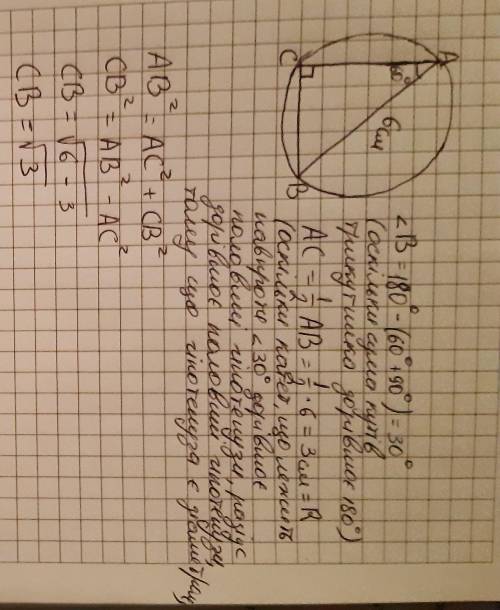 A
60°
6 см
C
B
∠B = 180° - (60° + 90°) = 30°
(оскільки сума кутів
трикутника дорівнює 180°)
AC = 1/2 AB = 1/2 · 6 = 3 см = R
(оскільки катет, що лежить
навпроти ∠30° дорівнює
половині гіпотенузи, радіус
дорівнює половині гіпотенузи,
тому що гіпотенуза є діаметром
AB² = AC² + CB²
CB² = AB² - AC²
CB = √6 - 3
CB = √3